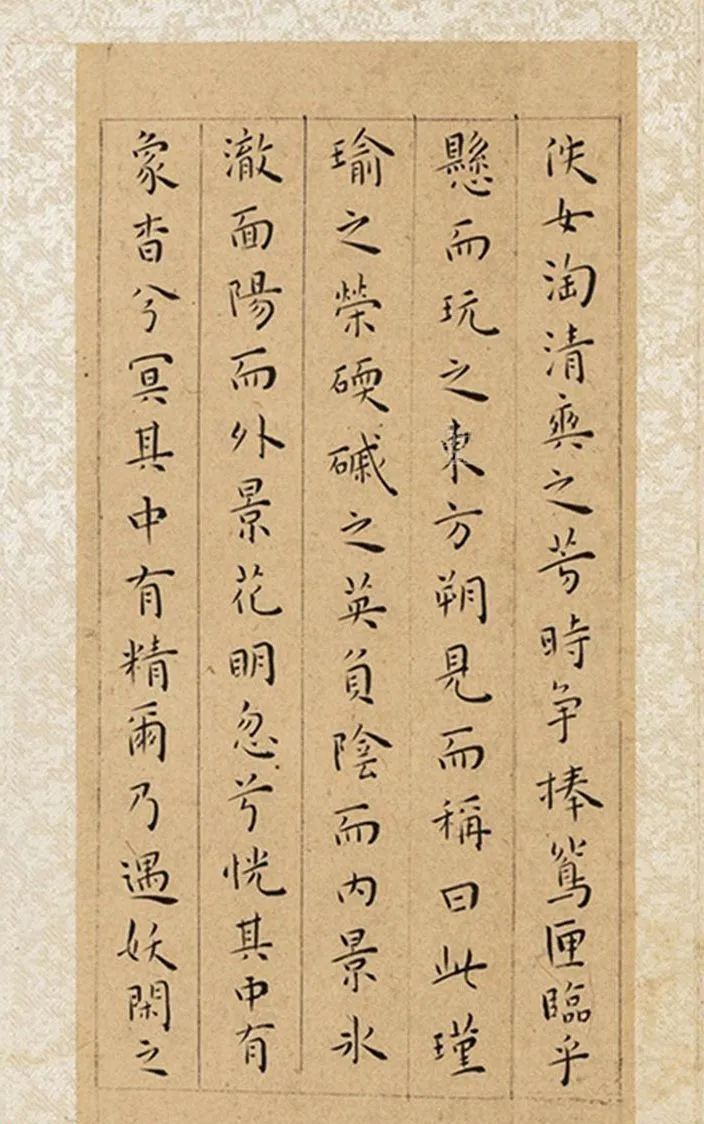 佚女淘清爽之芳時爭捧鸞匣臨乎
懸而玩之東方朔見而稱曰此瑾
瑜之榮碝磩之英負陰而內景氷
澈面陽而外景花明忽兮恍其中有
象杳兮冥其中有精爾乃遇妖閑之